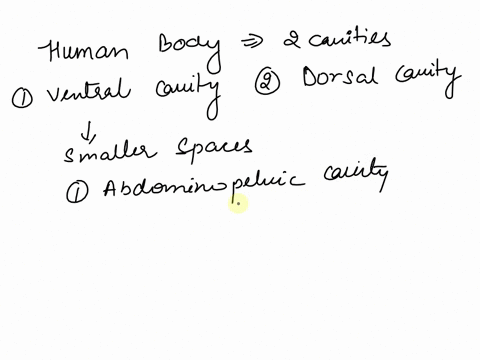 Human Body ⇒ 2 cavities
① Ventral cavity ② Dorsal cavity
↓
Smaller spaces
① Abdominopelvic cavity